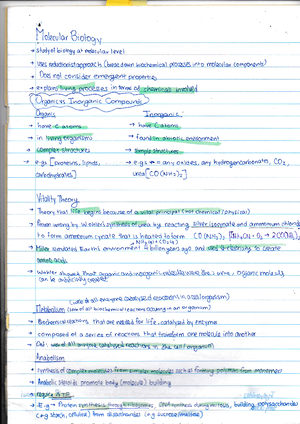 Molecular Biology
→ study of biology at molecular level
→ Uses reductionist approach (break down biochemical processes into molecular components)
→ Does not consider emergent properties
→ explains living processes in terms of chemicals involved
Organic vs Inorganic Compounds
Organic Inorganic
→ have C atoms → have C atoms
→ in living organisms → found in environment
→ complex structures → simple structures
→ e.g. [proteins, lipids, → e.g. any oxides, any hydrogencarbonates, CO2,
carbohydrates] urea [CO(NH2)2]
Vitality Theory
→ Theory that life begins because of a vital principal (not chemical/physical)
→ Proven wrong by Wöhler's synthesis of urea by reacting silver isocyanate and ammonium chloride
to form ammonium cyanate that is heated to form CO(NH2)2
→ Miller simulated Earth's environment 4 billion years ago and used electricity to create
amino acids
→ Wöhler showed that organic and inorganic molecules were like urea, organic molecules
can be artificially created
(web of all enzyme catalysed reactions in a cell/organism)
Metabolism (sum of all biochemical reactions occurring in an organism)
→ Biochemical reactions that are needed for life, catalysed by enzyme
→ composed of a series of reactions that transform one molecule into another
→ Def: web of all enzyme catalysed reactions in the cell/organism
Anabolism
→ Synthesis of complex molecules from simpler molecules such as forming polymer from monomer
→ Anabolic steroids promote body (molecule) building
→ require ATP
→ E.g → Protein synthesis, DNA synthesis during mitosis, building polysaccharides
(e.g. starch, cellulose) from disaccharides (e.g. sucrose/maltose)